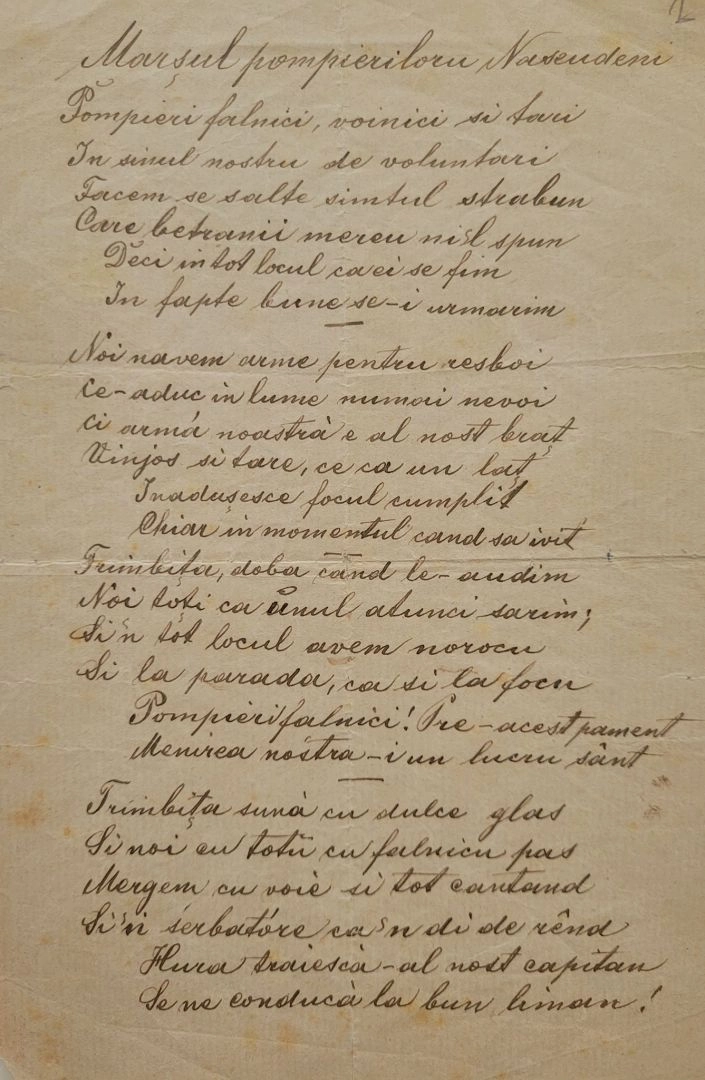 2
Marșul pompieriloru Naseudeni
Pompieri falnici, voinici si tari
In sinul nostru de voluntari
Facem se salte simtul strabun
Care betranii mereu ni'l spun
Deci in tot locul ca ei se fim
In fapte bune se-i urmarim
Noi navem arme pentru resboi
Ce-aduc in lume numai nevoi
Ci armá noastrà e al nost braț
Vinjos si tare, ce ca un laț
Inadușesce focul cumplit
Chiar in momentul cand sa ivit
Trimbița, doba cand le-audim
Noi toți ca unul atunci sarim;
Si'n tot locul avem norocu
Si la parada, ca si la focu
Pompieri falnici! Pre-acest pament
Menirea nóstra-i un lucru sânt
Trimbița sunà cu dulce glas
Si noi cu totii cu falnicu pas
Mergem cu voie si tot cantand
Si'n serbatóre ca'n di de rênd
Hura traiescà-al nost capitan
Se ne conducà la bun liman!